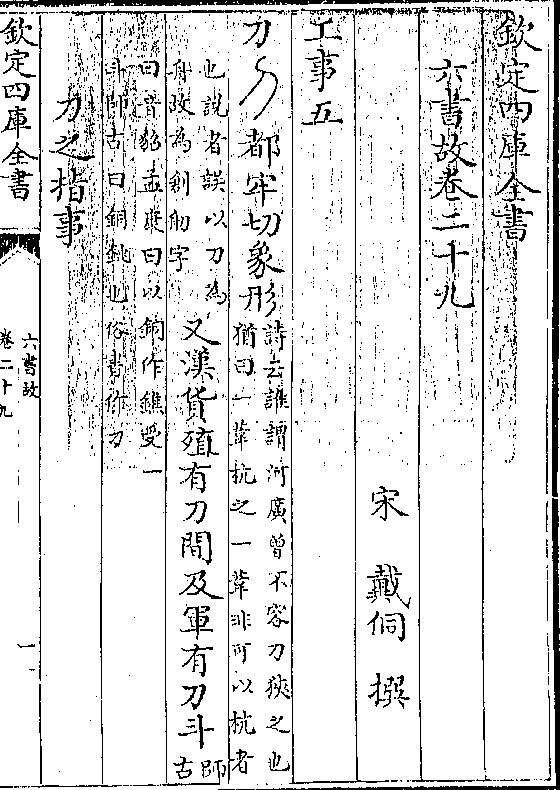 欽定四庫全書
六書故卷二十九
宋 戴侗 撰
工事五
刀 都牢切象形 詩云誰謂河廣曾不容刀狹之也
猶曰一葦杭之一葦非可以杭者
也說者誤以刀為
舟改為舠字
又漢貨殖有刀間及軍有刀斗 師
古
曰音貂孟康曰以銅作鐎受一
斗師古曰銅銚也俗書作刁
刀之指事
欽定四庫全書
六書故
卷二十九
一